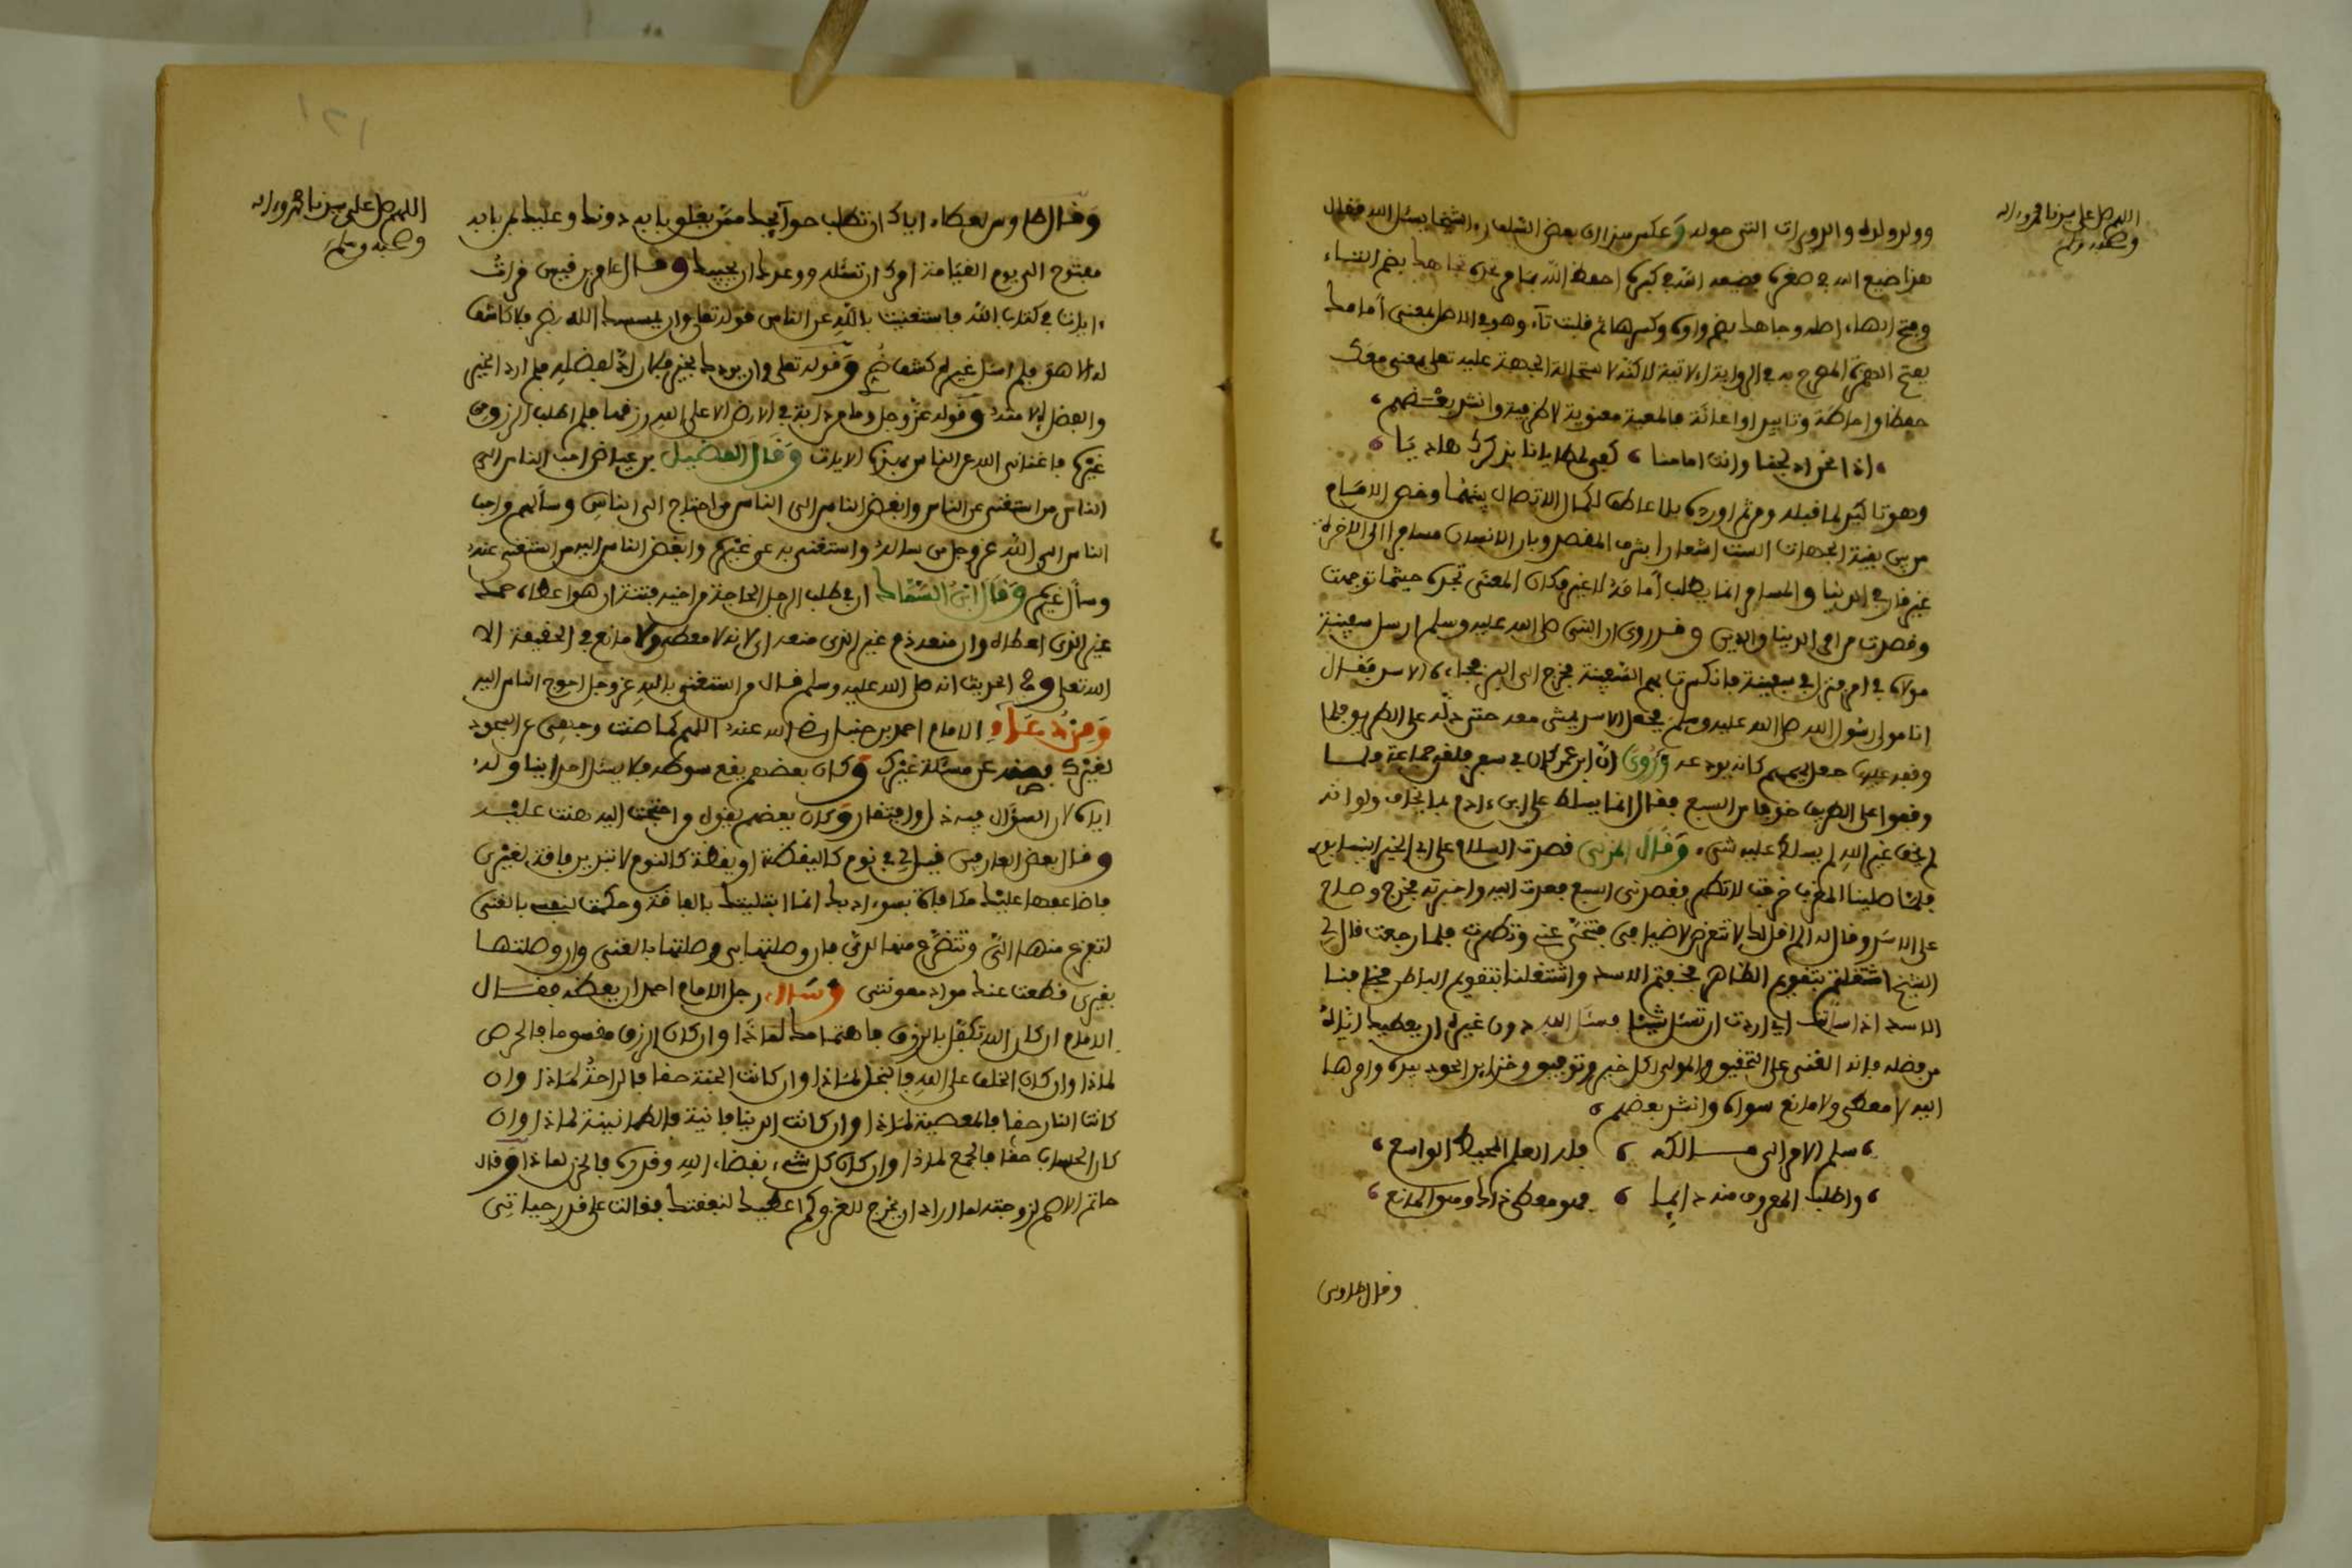 اللهم صل على سيدنا محمد وءاله
وصحبه وسلم
وولد ولده والدويرات التي حوله وعكس هذا ان بعض السلف رءا شيخا يسئل الناس فقال
هذا ضيع الله في صغره فضيعه الله في كبره احفظ الله بما مر تجده تجاهك بضم التاء
وفتح الهاء اصله وجاهك بضم واوه وكسرها ثم قلبت تاء وهو في الاصل بمعنى أمامك
بفتح الهمزة المصرح به في الرواية الاتية لاكنه لاستحالة الجهة عليه تعلى بمعنى معك
حفظا واحاطة وتاييدا واعانة فالمعية معنوية لا ظرفية وانشد بعضهم
اذا نحن ادلجنا وانت امامنا كفى لمطايانا بذكراك هاديا
وهو تاكيد لما قبله ومن ثم اورده بلا عاطف لكمال الاتصال بينهما وخص الامام
من بين بقية الجهات الست اشعارا بشرف المقصد وبان الانسان مسافر الى الاخرة
غير قار في الدنيا والمسافر انما يطلب أمامه لا غير فكان المعنى تجده حيثما توجهت
وقصدت من امر الدنيا والدين وقد روى ان النبي صلى الله عليه وسلم ارسل سفينة
مولاه في امر فنزل في سفينة فانكسرت بهم السفينة فخرج الى البر فجاءه الاسد فقال
انا مولى رسول الله صلى الله عليه وسلم فجعل الاسد يمشي معه حتى دله على الطريق فلما
وقف عليها جعل يهمهم كانه يودعه وروى ان ابن عمر كان في سفر فلقي جماعة
وقفوا على الطريق خوفا من السبع فقال انما يسلط على ابن ءادم ما يخاف ولو انه
لم يخف غير الله لم يسلط عليه شيء وقال المزني قصدت السلام على ابي الخير
فلما صلينا المغرب خرجت لاتطهر فقصدني السبع فعدت اليه واخبرته فخرج وصاح
على الاسد وقال له الم اقل لك لا تتعرض لاضيافي فتنحى عني وتطهرت فلما رجعت قال لي
الشيخ اشتغلتم بتقويم الظاهر فخفتم الاسد واشتغلنا بتقويم الباطن فخافنا
الاسد اذا سألت اي اردت ان تسئل شيئا فسئل الله دون غيره ان يعطيك اياه
من فضله فانه الغنى على التحقيق والمولى لكل خير وتوفيق وخزاين الجود بيده وامرها
اليه لا معطي ولا مانع سواه وانشد بعضهم
سلم الامر الى مالكه فله العلم المحيط الواسع
واطلب المعروف منه دايما فهو معطي ذاك وهو المانع
وقال طاوس
اللهم صل على سيدنا محمد وءاله
وصحبه وسلم
وقال طاوس لعطاء اياك ان تطلب حوايجك ممن يغلق بابه دونك وعليك بمن بابه
مفتوح الى يوم القيامة امرك ان تسئله ووعدك ان يجيبك وقال عامر بن قيس قرات
ءايات في كتاب الله فاستغنيت بالله عن الناس قوله تعلى وان يمسسك الله بضر فلا كاشف
له الا هو فلم اسئل غيره كشف ضر وقوله تعلى وان يردك بخير فلا راد لفضله فلم ارد الخير
والفضل الا منه وقوله عز وجل وما من دابة في الارض الا على الله رزقها فلم اطلب الرزق من
غيره فاغناني الله عن الناس بهذه الايات وقال الفضيل بن عياض احب الناس الى
الناس من استغنى عن الناس وابغض الناس الى الناس من احتاج الى الناس وسألهم واحب
الناس الى الله عز وجل من سأله واستغنى به عن غيره وابغض الناس اليه من استغنى عنه
وسأل غيره وقال ابن السماك ان في طلب الرجل الحاجة من اخيه فتنة ان هو اعطاه حمد
غير الذي اعطاه وان منعه ذم غير الذي منعه اى لانه لا معطي ولا مانع في الحقيقة الا
الله تعلى وفي الحديث انه صلى الله عليه وسلم قال من استغنى بالله عز وجل احوج الناس اليه
ومن دعاء الامام احمد بن حنبل رضي الله عنه اللهم كما صنت وجهي عن السجود
لغيرك فصنه عن مسئلة غيرك وكان بعضهم يقع سوطه فلا يسئل احدا يناوله
اياه لان السؤال فيه ذل وافتقار وكان بعضهم يقول من احتجت اليه هنت عليه
وقال بعض العارفين قيل لي في نوم كاليقظة او يقظة كالنوم لا تبدين فاقة لغيري
فاضاعفها عليك مكافاة بسوء ادبك انما ابتليتك بالفاقة وحكمت لنفسي بالغنى
لتفزع منها الي وتتضرع منها لدي فان وصلتها بي وصلتها بالغنى وان وصلتها
بغيري قطعت عنك مواد معونتي وسأل رجل الامام احمد ان يعظه فقال
الامام ان كان الله تكفل بالرزق فاهتمامك لماذا وان كان الرزق مقسوما فالحرص
لماذا وان كان الخلف على الله فالبخل لماذا وان كانت الجنة حقا فالراحة لماذا وان
كانت النار حقا فالمعصية لماذا وان كانت الدنيا فانية فالطمانينة لماذا وان
كان الحساب حقا فالجمع لماذا وان كان كل شيء بقضاء الله وقدره فالحزن لماذا وقال
حاتم الاصم لزوجته لما اراد ان يخرج للغزو كم اعطيك لنفقتك فقالت على قدر حياتي